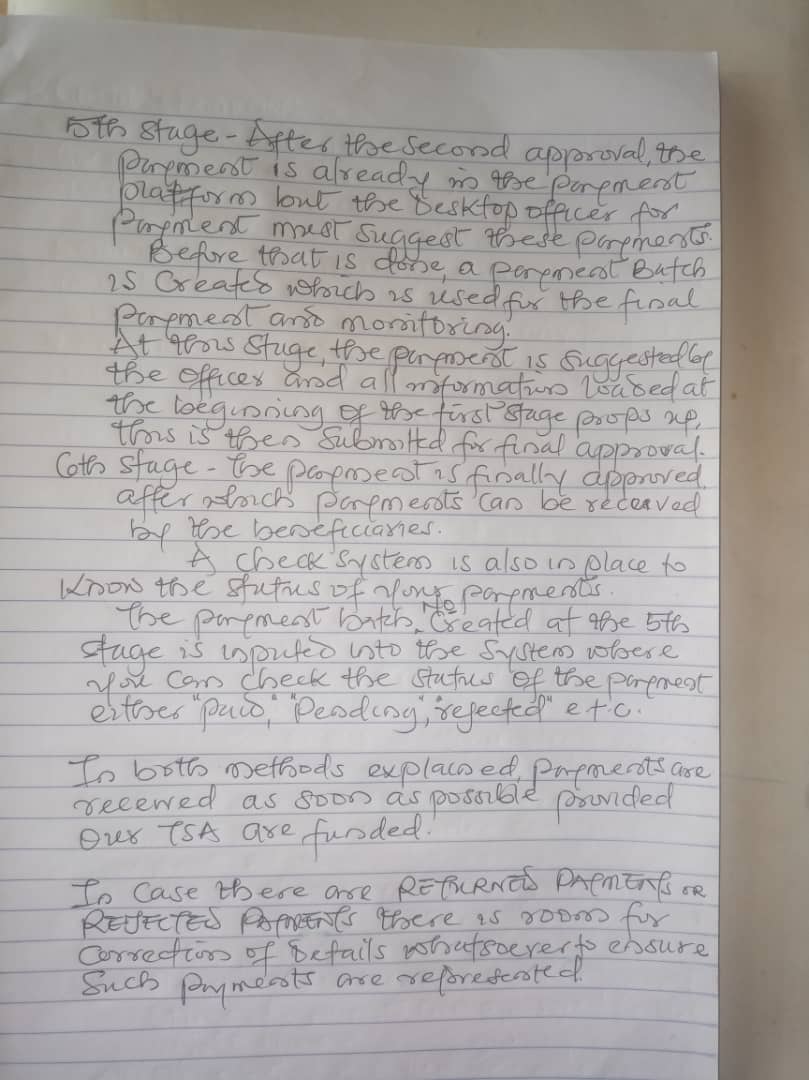 5th Stage - After the second approval, the
Payment is already in the payment
platform but the Desktop officer for
Payment must suggest these payments.
Before that is done, a payment Batch
is Created which is used for the final
Payment and monitoring.
At this Stage, the payment is suggested by
the officer and all information loaded at
the beginning of the first stage props up,
this is then Submitted for final approval.
6th Stage - The payment is finally approved
after which payments can be received
by the beneficiaries.
A check System is also in place to
Know the status of your payments.
The payment batch No Created at the 5th
Stage is inputed into the System where
you can check the status of the payment
either "paid," "Pending", "rejected" e.t.c.
In both methods explained, payments are
received as soon as possible provided
Our TSA are funded.
In Case there are RETURNED PAYMENTS OR
REJECTED PAYMENTS there is room for
Correction of Details whatsoever to ensure
Such payments are represented.